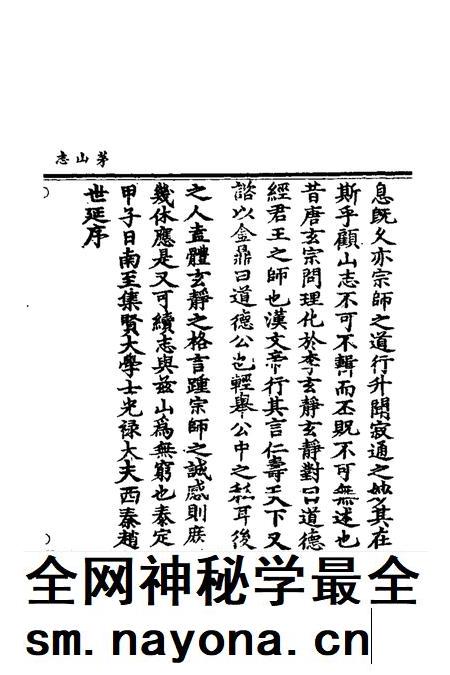 茅山志
息既久亦宗師之道行升聞寂通之妙其在
斯乎顧山志不可不輯而丕貺不可無述也
昔唐玄宗問理化於李玄靜玄靜對曰道德
經君王之師也漢文帝行其言仁壽天下又
諮以金鼎曰道德公也輕舉公中之私耳後
之人盍體玄靜之格言踵宗師之誠感則庶
幾休應是又可續志與兹山爲無窮也泰定
甲子日南至集賢大學士光禄大夫西秦趙
世延序
全网神秘学最全
sm.nayona.cn